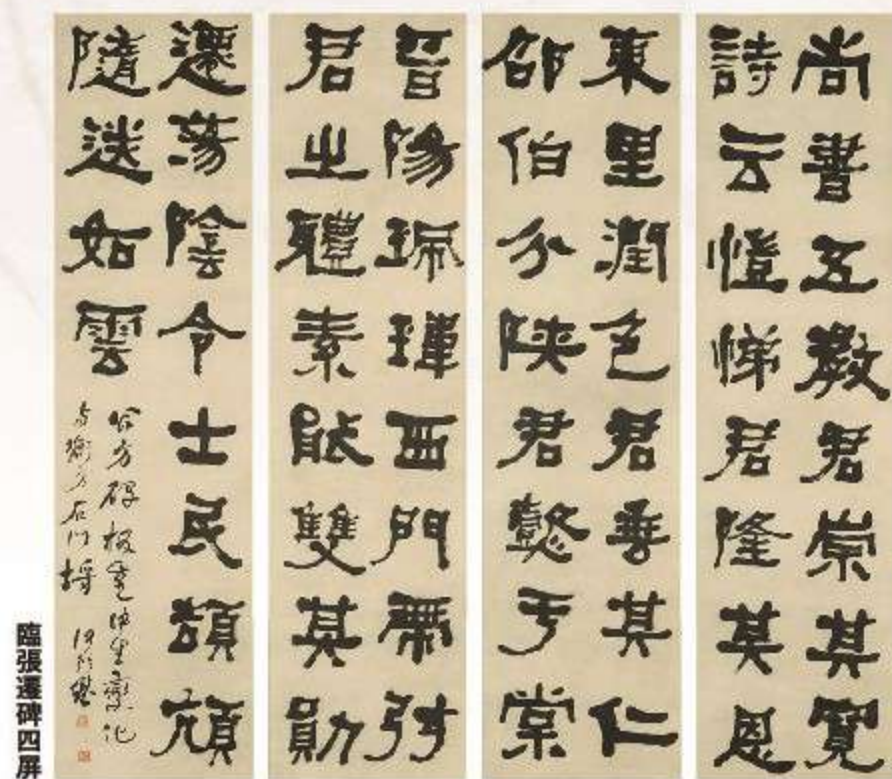 尚書五教君崇其寬
詩云愷悌君隆其恩
東里潤色君垂其仁
邵伯分陝君懿于棠
晉陽珮瑋西門帶弦
君之體素能雙其勛
遷蕩陰令士民頡頏
隨送如雲
公方碑極變化
與衡方石門埒
臨張遷碑四屏